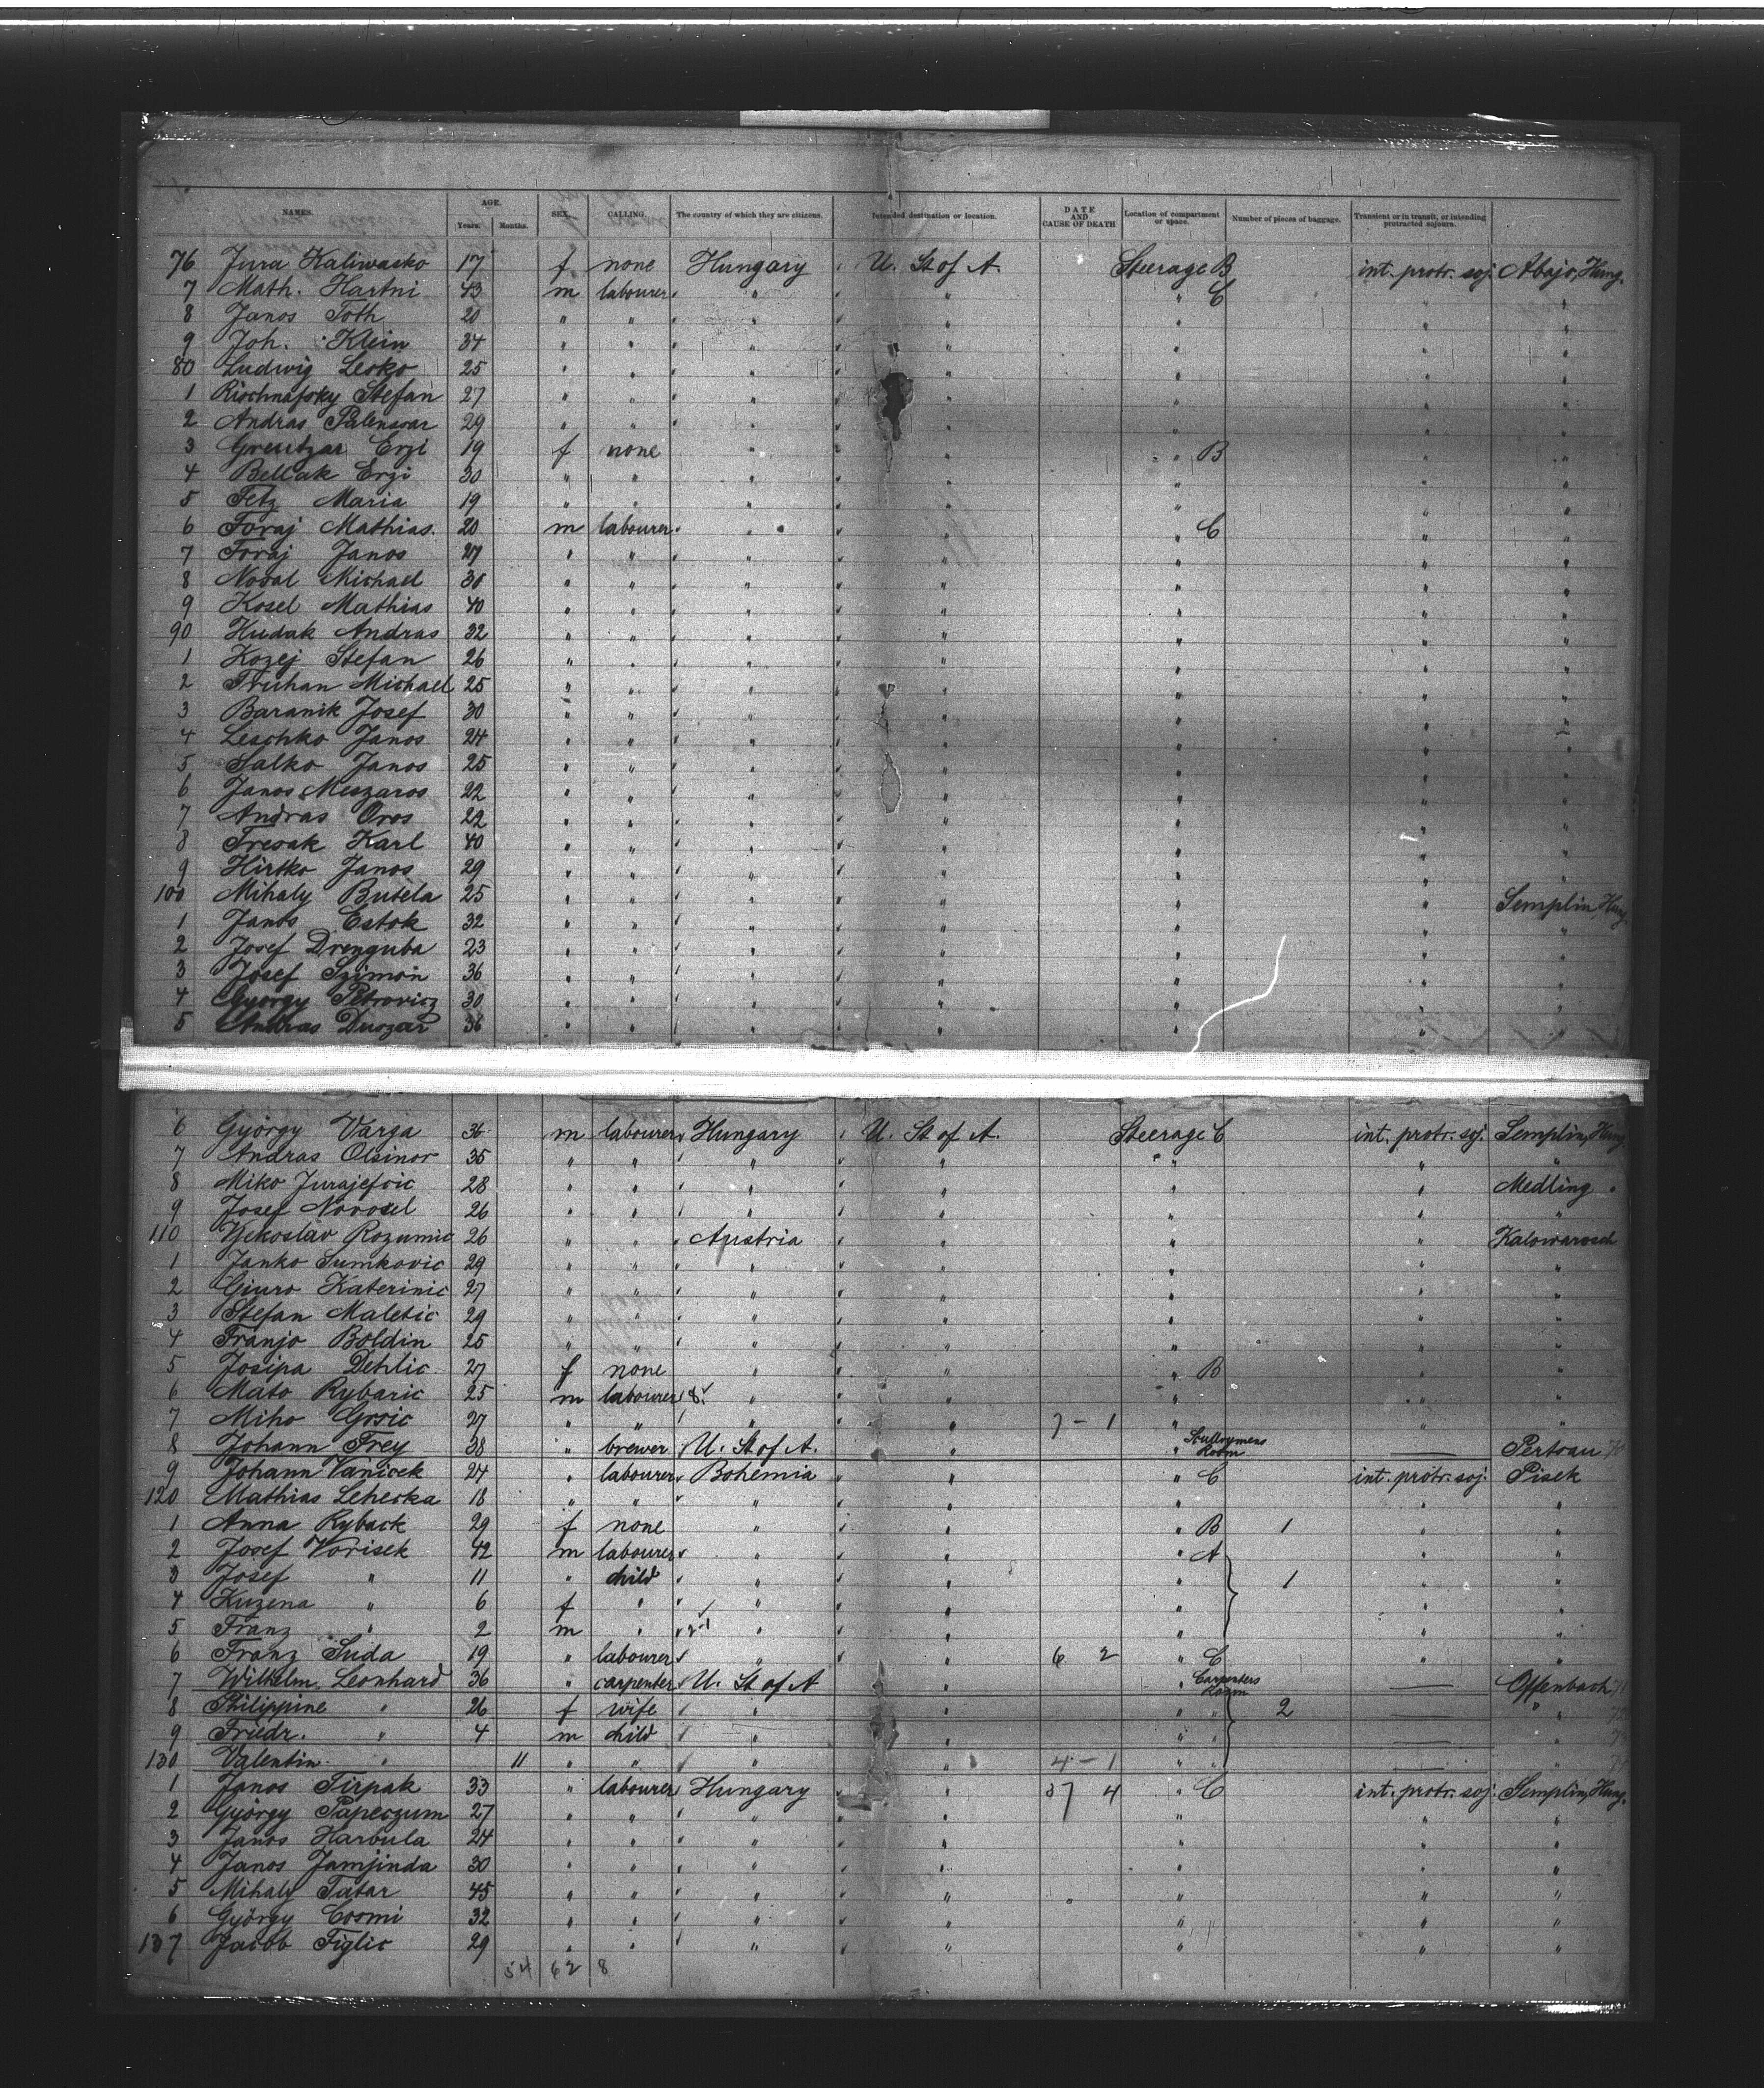 NAMES. AGE. Years. Months. SEX. CALLING. The country of which they are citizens. Intended destination or location. DATE AND CAUSE OF DEATH Location of compartment or space. Number of pieces of baggage. Transient or in transit, or intending protracted sojourn.
76 Jura Kaliwasko 17 f none Hungary U. St of A. Steerage B int. protr. soj. Abajo, Hung.
7 Math. Hartni 43 m labourer " " " C " "
8 Janos Toth 20 " " " " " " "
9 Joh. Klein 34 " " " " " " "
80 Ludwig Lesko 25 " " " " " " "
1 Stefan 27 " " " " " " "
2 Andras 29 " " " " " " "
3 Greutzar Erzi 19 f none " " " B " "
4 Bellak Erzi 30 " " " " " " "
5 Fetz Maria 19 " " " " " " "
6 Foraj Mathias. 20 m labourer " " " C " "
7 Foraj Janos 27 " " " " " " "
8 Michael 30 " " " " " " "
9 Kosel Mathias 40 " " " " " " "
90 Hudak Andras 32 " " " " " " "
1 Kozej Stefan 26 " " " " " " "
2 Truhan Michael 25 " " " " " " "
3 Baranik Josef 30 " " " " " " "
4 Leschko Janos 24 " " " " " " "
5 Salko Janos 25 " " " " " " "
6 Janos Meszaros 22 " " " " " " "
7 Andras Oros 22 " " " " " " "
8 Tresak Karl 40 " " " " " " "
9 Hirtko Janos 29 " " " " " " "
100 Mihaly Butela 25 " " " " " " Semplin, Hung.
1 Janos Estok 32 " " " " " " "
2 Josef Drenguba 23 " " " " " " "
3 Josef Szimon 36 " " " " " " "
4 György Petrovicz 30 " " " " " " "
5 Andras Duszar 36 " " " " " " "
6 György Varga 36 m labourer Hungary U. St of A. Steerage C int. protr. soj. Semplin, Hung
7 Andras Olsinor 35 " " " " " " "
8 Miko Jurajefcic 28 " " " " " " Medling "
9 Josef Novosel 26 " " " " " " "
110 Vjekoslav Rozumic 26 " " Austria " " " Kalowarosch
1 Janko Sumkovic 29 " " " " " " "
2 Giuro Katerinic 27 " " " " " " "
3 Stefan Maletic 29 " " " " " " "
4 Franjo Boldin 25 " " " " " " "
5 Josipa Dehlic 27 f none " " " B " "
6 Mato Rybaric 25 m labourer 8 " " " " "
7 Miho Grsic 27 " " " " 7 - 1 " " "
8 Johann Frey 38 " brewer U. St of A. " " Scullrymens Room — Pertoau
9 Johann Vanicek 24 " labourer Bohemia " " C int. protr. soj. Pisek
120 Mathias Lehecka 18 " " " " " " "
1 Anna Ryback 29 f none " " " B 1 " "
2 Josef Vorisek 42 m labourer " " " A " "
3 Josef " 11 " child " " " 1 " "
4 Kuzena " 6 f " " " " " "
5 Franz " 2 m " " " " " "
6 Franz Suda 19 " labourer " " 6 2 " C " "
7 Wilhelm Leonhard 36 " carpenter U. St of A " " Carpenters Room — Offenbach
8 Philippine " 26 f wife " " " " 2 — "
9 Friedr. " 4 m child " " " " — "
130 Valentin " 11 " " " " 4 - 1 " " — "
1 Janos Tirpak 33 " labourer Hungary " 37 4 " C int. protr. soj. Semplin, Hung.
2 György Paperzum 27 " " " " " " "
3 Janos Harbula 24 " " " " " " "
4 Janos Jamjinda 30 " " " " " " "
5 Mihaly Tatar 45 " " " " " " "
6 György Cosmi 32 " " " " " " "
137 Jacob Figlic 29 " " " " " " "
54 62 8